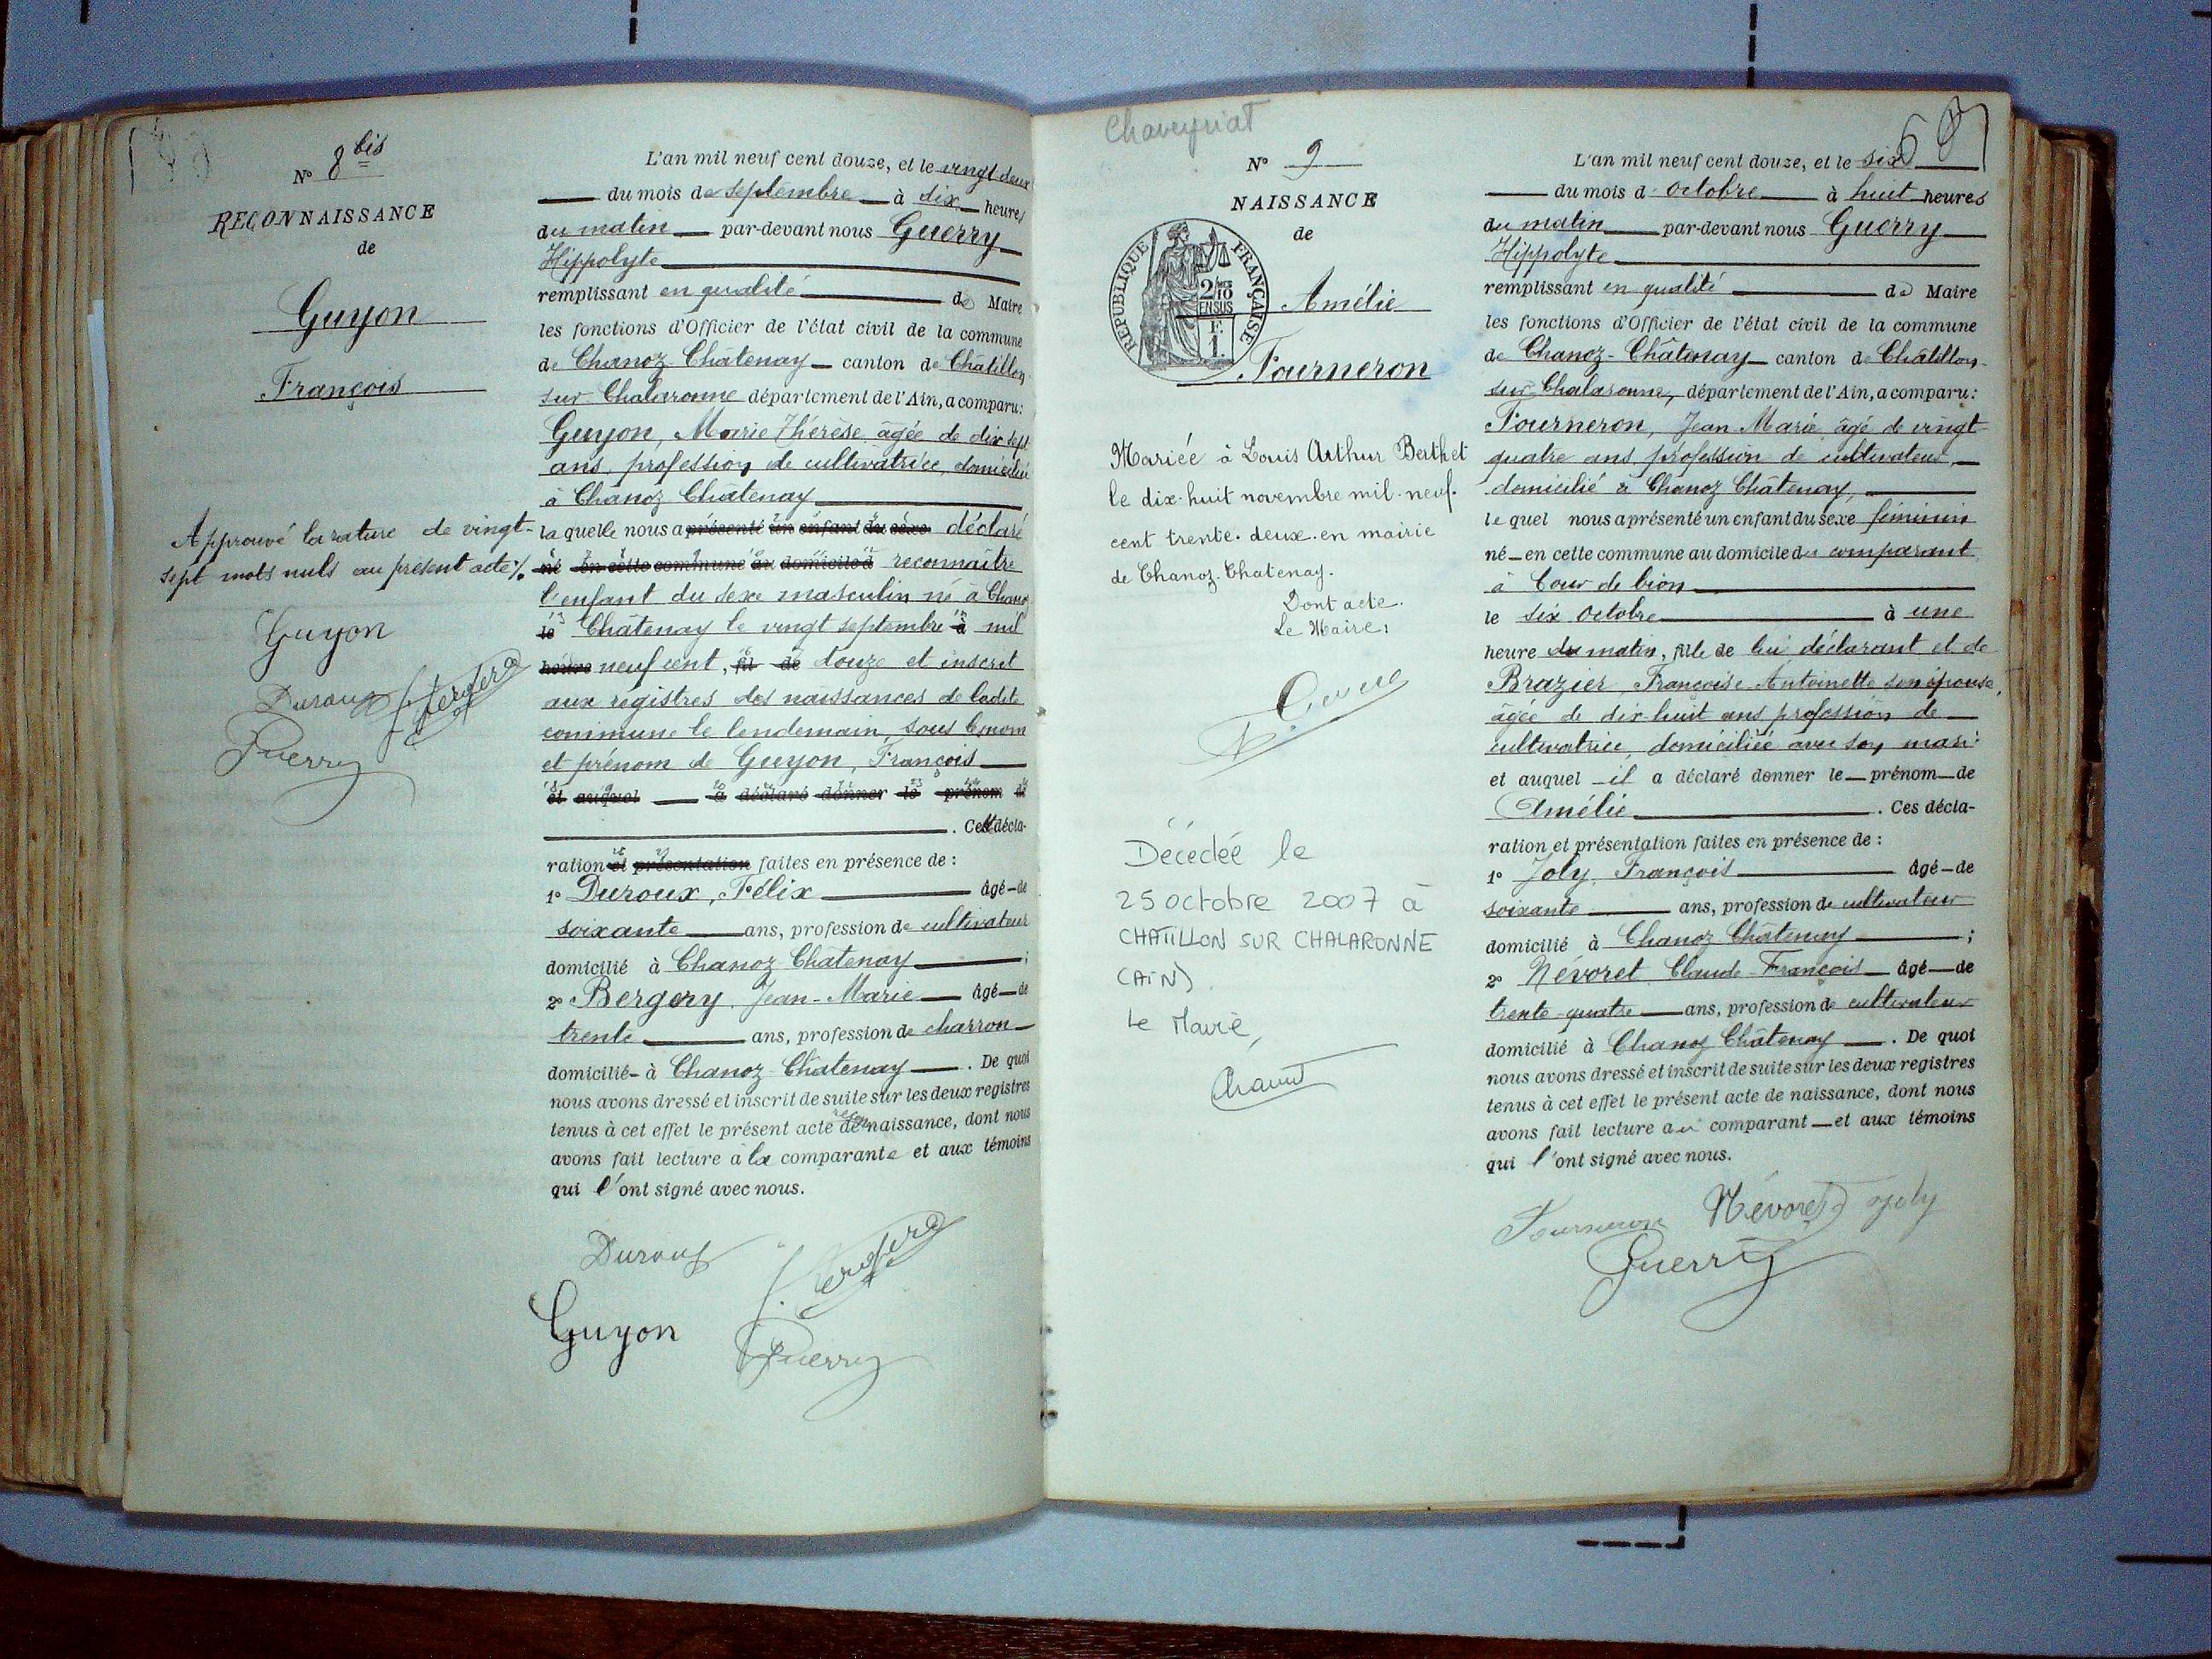 N° 8 bis
RECONNAISSANCE
de
Guyon
François
Approuvé la rature de vingt-
sept mots nuls au présent acte %.
Guyon
Duroux
Guerry
L'an mil neuf cent douze, et le vingt deux
du mois de septembre à dix heures
du matin par-devant nous Guerry
Hippolyte
remplissant en qualité de Maire
les fonctions d'Officier de l'état civil de la commune
de Chanoz Châtenay canton de Châtillon
sur Chalaronne département de l'Ain, a comparu:
Guyon, Marie Thérèse, âgée de dix sept
ans, profession de cultivatrice, domiciliée
à Chanoz Châtenay
la quelle nous a présenté un enfant du sexe déclaré
né en cette commune au domicile d reconnaître
l'enfant du sexe masculin né à Chanoz
le Châtenay le vingt septembre à mil
heure neuf cent, fil de douze et inscrit
aux registres des naissances de ladite
commune le lendemain, sous le nom
et prénom de Guyon, François
et auquel a déclaré donner le prénom de
. Cette décla-
ration et présentation faites en présence de :
1° Duroux, Félix âgé de
soixante ans, profession de cultivateur
domicilié à Chanoz Châtenay ;
2° Bergery, Jean-Marie âgé de
trente ans, profession de charron
domicilié à Chanoz Châtenay . De quoi
nous avons dressé et inscrit de suite sur les deux registres
tenus à cet effet le présent acte de naissance, dont nous
avons fait lecture à la comparante et aux témoins
qui l'ont signé avec nous.
Duroux
Guyon
Guerry
Chaveyriat
N° 9
NAISSANCE
de
REPUBLIQUE FRANÇAISE
2/10
EN SUS
F.
1.
Amélie
Fourneron
Mariée à Louis Arthur Berthet
le dix-huit novembre mil-neuf-
cent trente-deux en mairie
de Chanoz-Chatenay.
Dont acte.
Le Maire:
Décédée le
25 octobre 2007 à
CHATILLON SUR CHALARONNE
(AIN).
Le Maire,
L'an mil neuf cent douze, et le six
du mois d'octobre à huit heures
du matin par-devant nous Guerry
Hippolyte
remplissant en qualité de Maire
les fonctions d'Officier de l'état civil de la commune
de Chanoz-Châtenay canton de Châtillon-
sur-Chalaronne, département de l'Ain, a comparu:
Fourneron, Jean-Marie âgé de vingt-
quatre ans, profession de cultivateur,
domicilié à Chanoz Châtenay,
lequel nous a présenté un enfant du sexe féminin
né en cette commune au domicile du comparant
à Cour de bion
le six octobre à une
heure du matin, fille de lui déclarant et de
Brazier, Françoise Antoinette son épouse,
âgée de dix-huit ans profession de
cultivatrice, domiciliée avec son mari
et auquel il a déclaré donner le prénom de
Amélie . Ces décla-
ration et présentation faites en présence de :
1° Joly, François âgé de
soixante ans, profession de cultivateur
domicilié à Chanoz Châtenay ;
2° Névoret Claude-François âgé de
trente-quatre ans, profession de cultivateur
domicilié à Chanoz Châtenay . De quoi
nous avons dressé et inscrit de suite sur les deux registres
tenus à cet effet le présent acte de naissance, dont nous
avons fait lecture au comparant et aux témoins
qui l'ont signé avec nous.
Fourneron Névoret Joly
Guerry